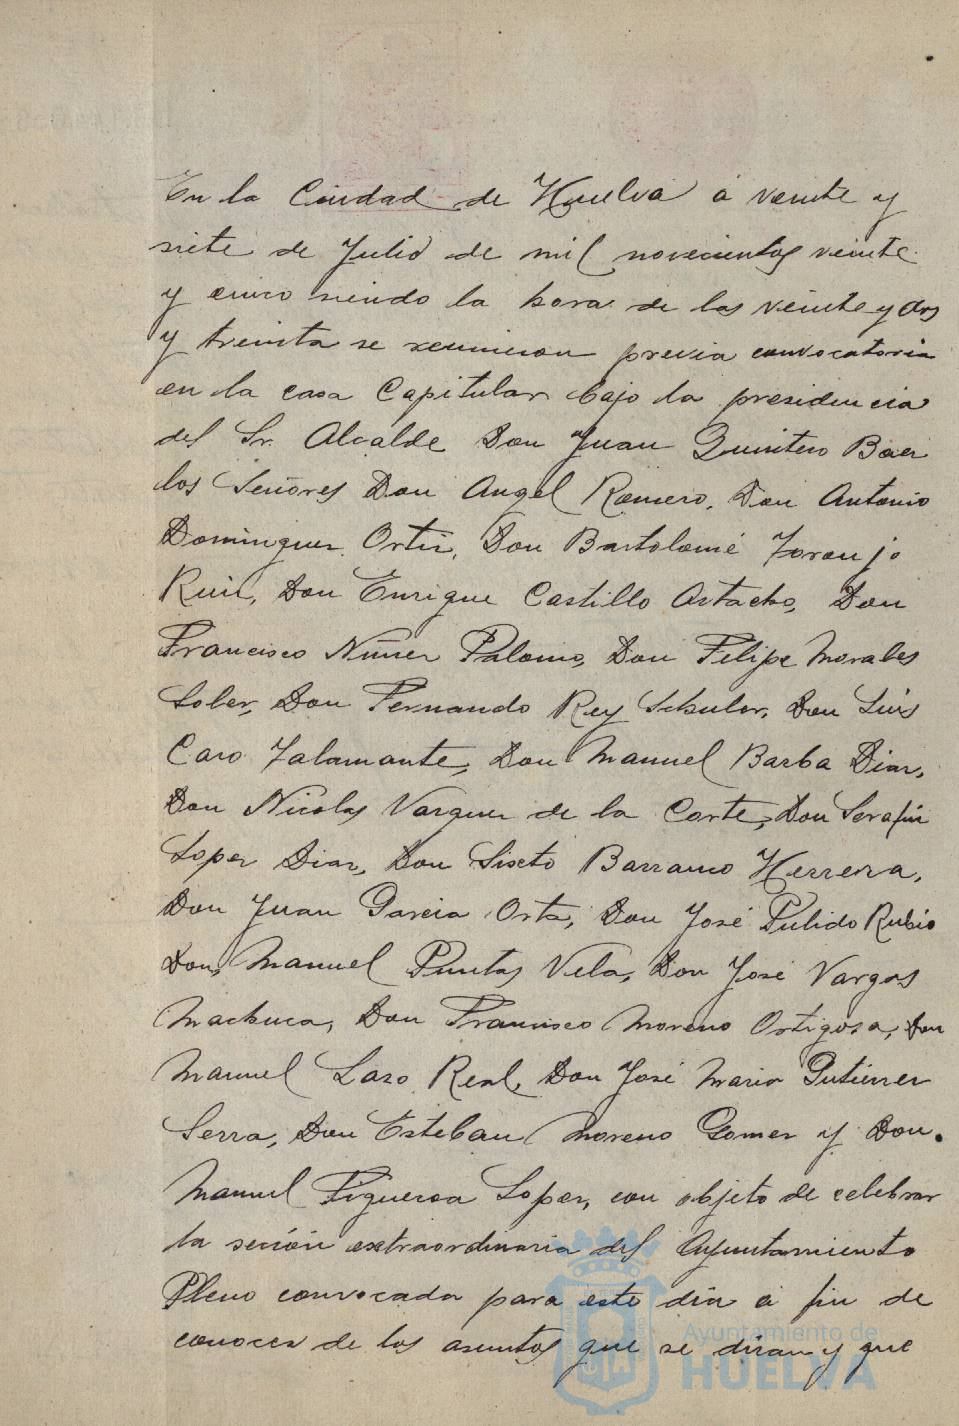 En la Ciudad de Huelva á veinte y
siete de Julio de mil novecientos veinte
y cinco siendo la hora de las veinte y dos
y treinta se reunieron previa convocatoria
en la casa Capitular bajo la presidencia
del Sr. Alcalde Don Juan Quintero Baez
los Señores Don Angel Romero, Don Antonio
Dominguez Ortiz, Don Bartolomé Toronjo
Ruiz, Don Enrique Castillo Ostacho, Don
Francisco Nuñez Palomo, Don Felipe Morales
Soler, Don Fernando Rey Schuler, Don Luis
Caro Talamante, Don Manuel Barba Diaz,
Don Nicolas Vazquez de la Corte, Don Serafin
Lopez Diaz, Don Sixto Barranco Herrera,
Don Juan Garcia Orta, Don José Pulido Rubio
Don, Manuel Puntas Vela, Don José Vargas
Machuca, Don Francisco Moreno Ortigosa, Don
Manuel Lazo Real, Don José Maria Gutierrez
Serra, Don Esteban Moreno Gomez y Don.
Manuel Figueroa Lopez, con objeto de celebrar
la seción extraordinaria del Ayuntamiento
Pleno convocada para este dia á fin de
conocer de los asuntos que se diran y que
Ayuntamiento de
HUELVA